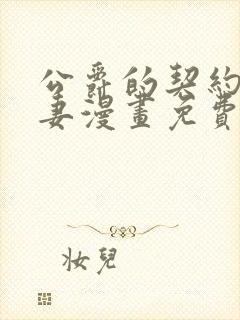 公爵的契約
妻漫畫免費
妝兒